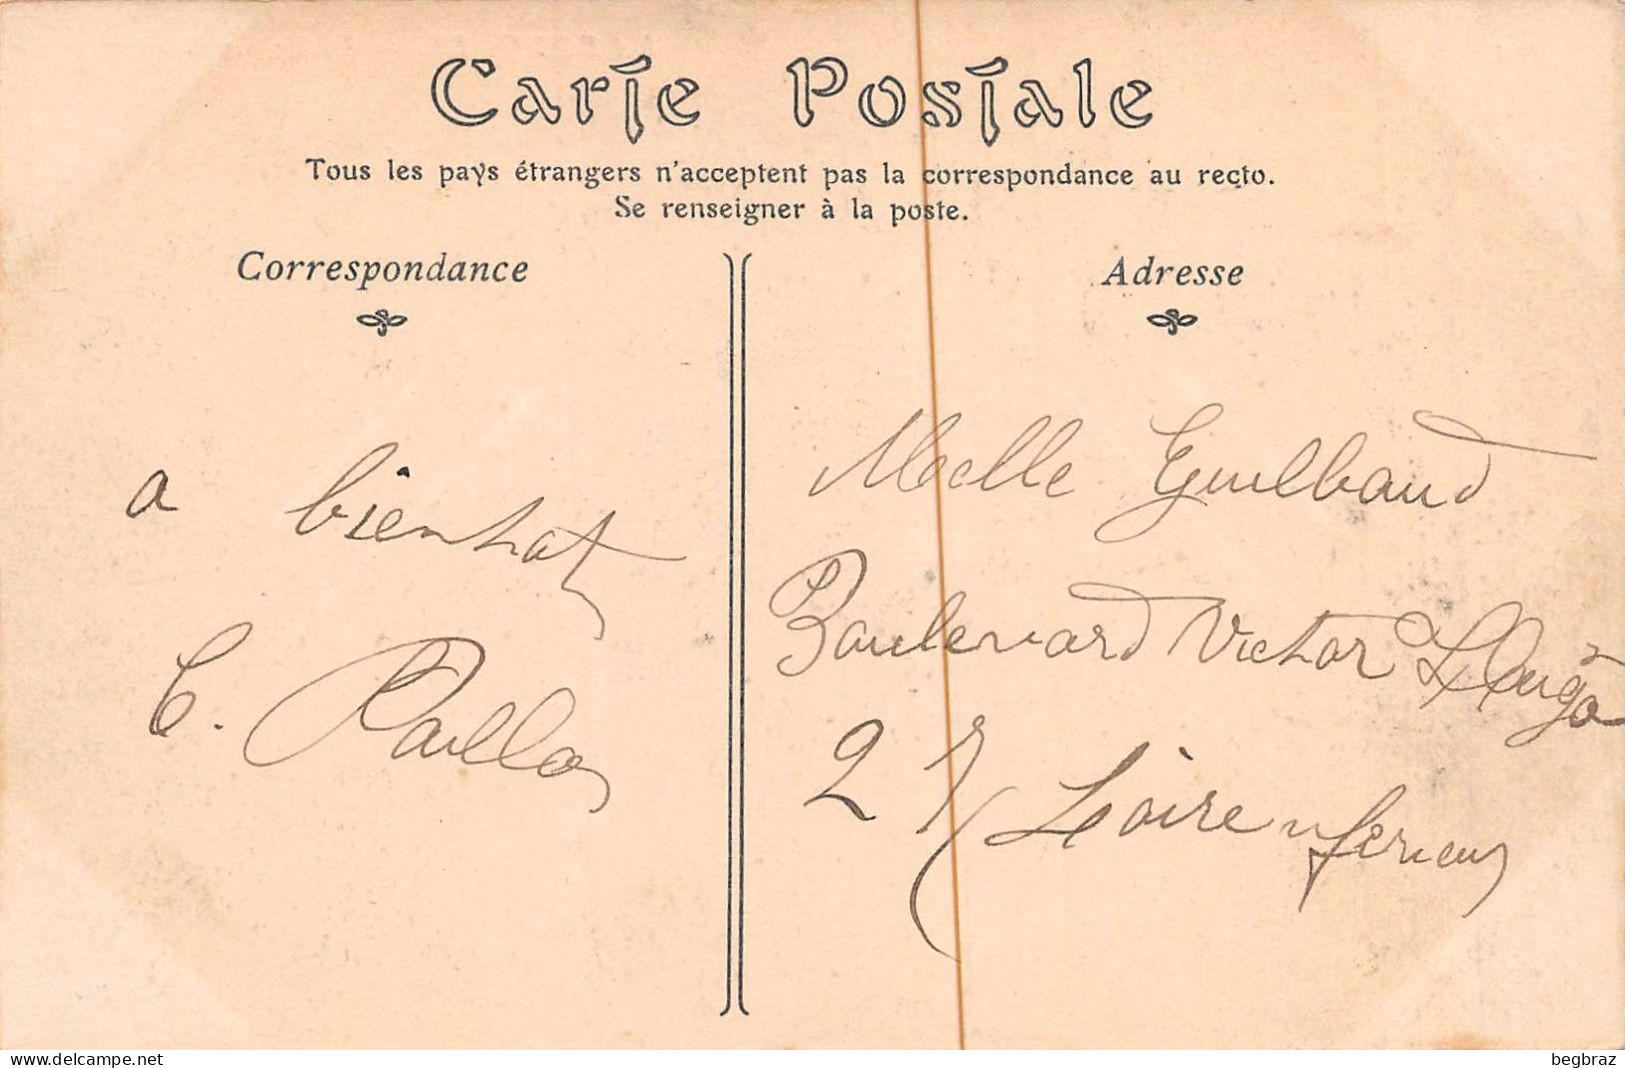 Carte Postale
Tous les pays étrangers n'acceptent pas la correspondance au recto.
Se renseigner à la poste.
Correspondance
Adresse
a bientot
C. Paillos
Melle Guilbaud
Boulevard Victor Hugo
27 Loire nferieur
delcampe.net
begbraz